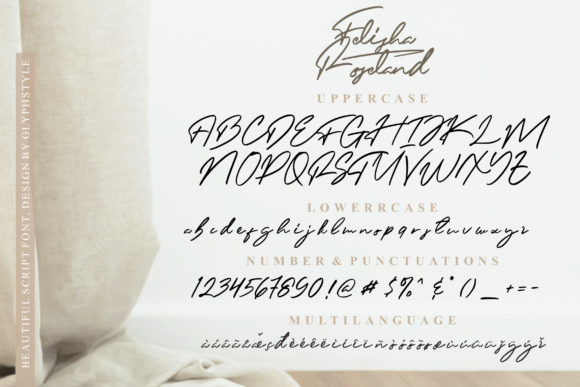 Felisha
Roseland
UPPERCASE
ABCDEFGHIJKLM
NOPQRSTUVWXYZ
LOWERRCASE
abcdefghijklmnopqrstuvwxyz
NUMBER & PUNCTUATIONS
1234567890!@#$%^&*()_+=-
MULTILANGUAGE
BEAUTIFUL SCRIPT FONT, DESIGN BY GLYPHSTYLE